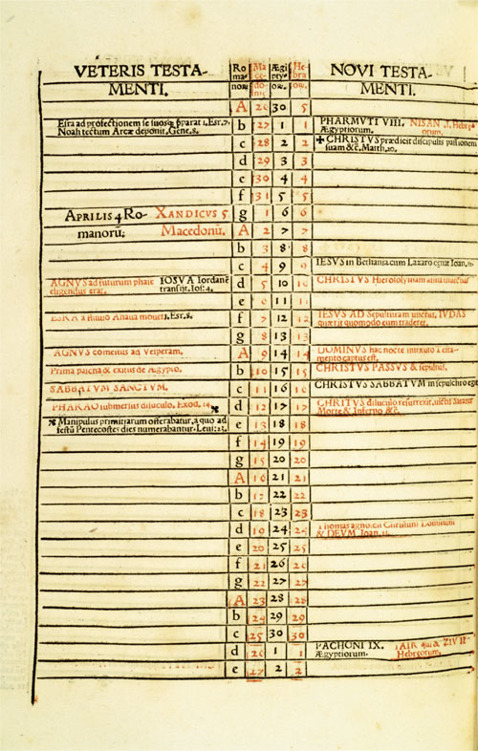 VETERIS TESTA-
MENTI.
Ro
ma-
noru.
Ma
ce-
do-
nū.
Ægi
ptyo-
orū.
He
bræ
orū.
NOVI TESTA-
MENTI.
A 26 30 5
Esra ad profectionem se suosq; parat 1. Esr. 7.
Noah tectum Arcæ deponit, Gene. 8.
b 27 1 1
PHARMVTI VIII. NISAN
Ægyptiorum.
c 28 2 2
✚ CHRISTVS prædicit discipulis passionem
suam &c. Matth. 20.
d 29 3 3
e 30 4 4
f 31 5 5
APRILIS 4 Ro-
manorū;
XANDICVS 5
Macedonū.
g 1 6 6
A 2 7 7
b 3 8 8
c 4 9 9
IESVS in Bethania cum Lazaro
AGNVS ad futurum phase
eligendus erat.
IOSVA Iordanē
transijt, Ios: 4.
d 5 10 10
CHRISTVS Hierosolymam
e 6 11 11
1. Esr. 8.
f 7 12 12
IESVS AD Sepulturam IVDAS
quærit quomodo eum traderet.
g 8 13 13
AGNVS comeditur ad Vesperam.
A 9 14 14
DOMINVS hac nocte
captus est.
Prima pascha & exitus de Ægypto.
b 10 15 15
CHRISTVS PASSVS & sepultus.
SABBATVM SANCTVM.
c 11 16 16
CHRISTVS SABBATVM in sepulchro
PHARAO submersus diluculo, Exod. 14.
d 12 17 17
diluculo resurrexit,
Morte & Inferno &c.
Manipulus primitiarum offerebatur, a quo ad
festū Pentecostes dies numerabantur. Leui: 23.
e 13 18 18
f 14 19 19
g 15 20 20
A 16 21 21
b 17 22 22
c 18 23 23
d 19 24 24
Thomas
& DEVM. Ioan.
e 20 25 25
f 21 26 26
g 22 27 27
A 23 28 28
b 24 29 29
c 25 30 30
d 26 1 1
PACHONI IX. ZIV II
Ægyptiorum. Hebreorum.
e 27 2 2